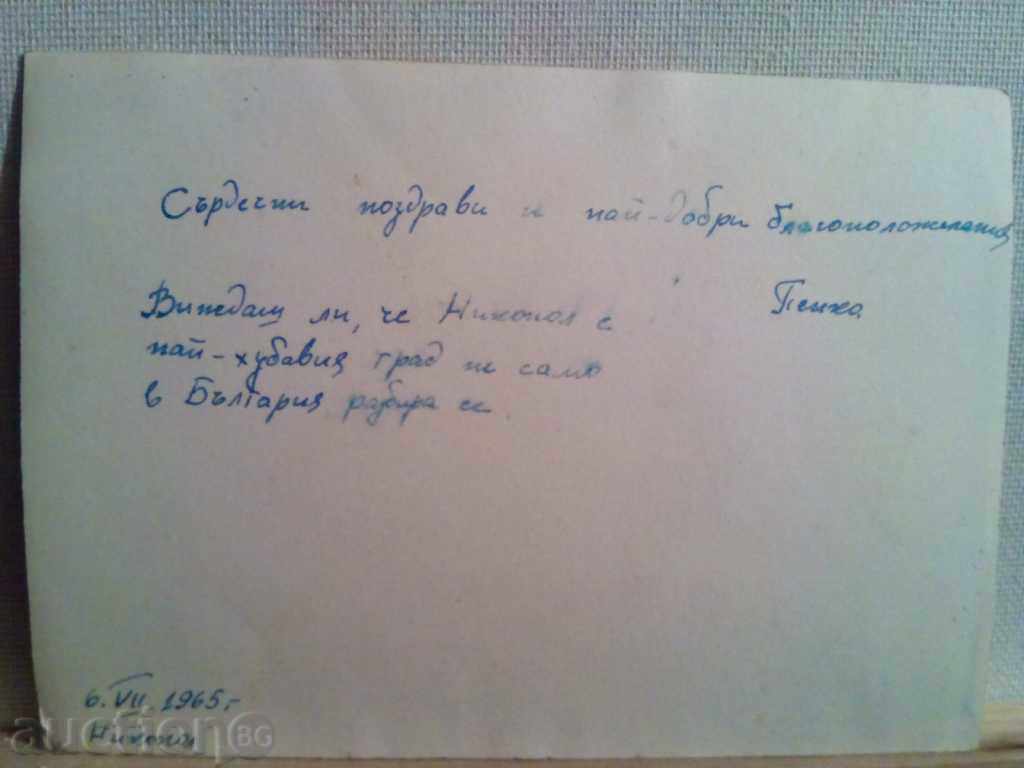 Сърдечни поздрави и най-добри благоположелания
Пенка
Виждаш ли, че Никопол е
най-хубавия град не само
в България разбира се
6. VII. 1965 г
Никопол
auctionBG